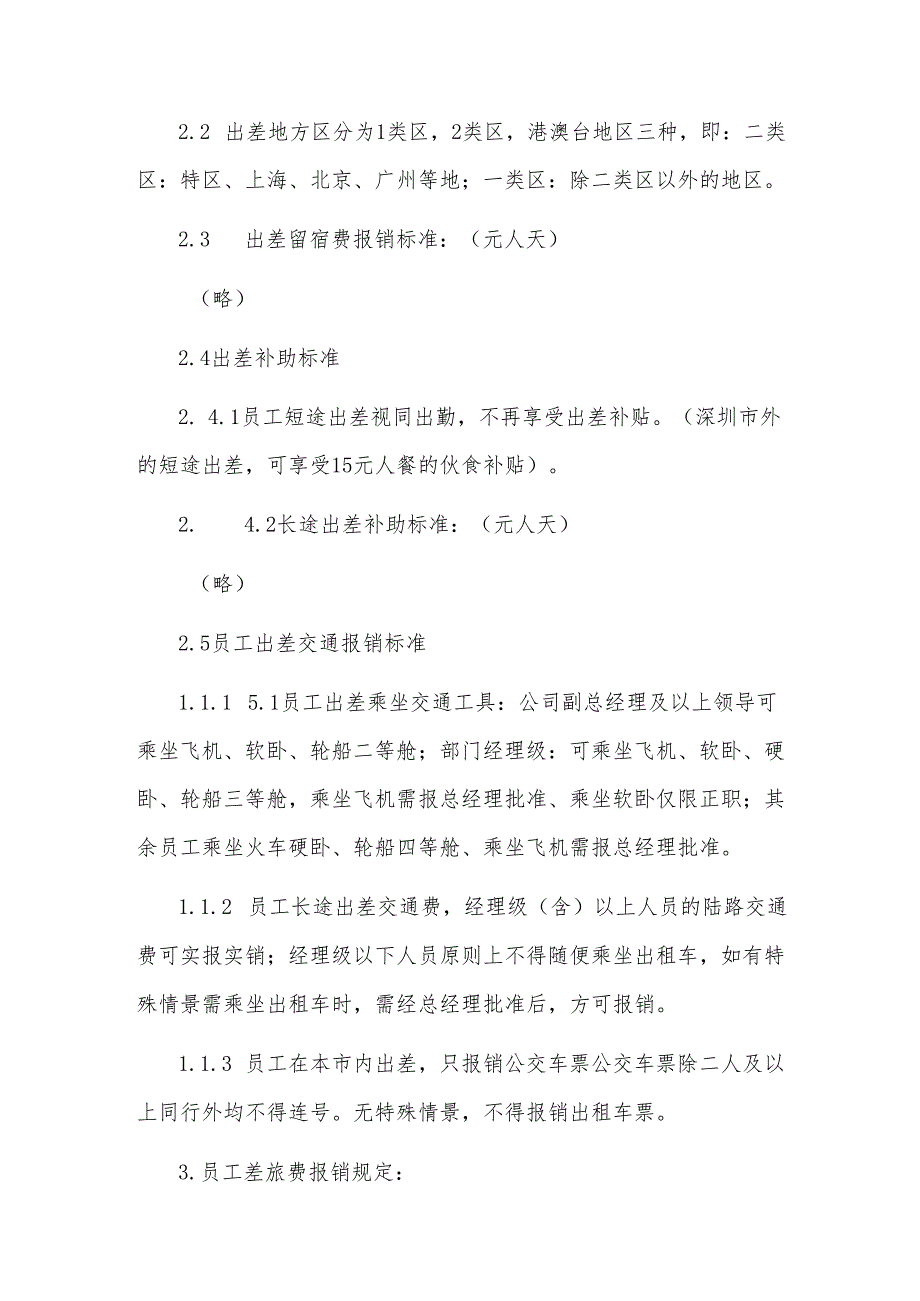 2.2 出差地方区分为1类区，2类区，港澳台地区三种，即：二类
区：特区、上海、北京、广州等地；一类区：除二类区以外的地区。
2.3 出差留宿费报销标准：（元人天）
（略）
2.4出差补助标准
2. 4.1员工短途出差视同出勤，不再享受出差补贴。（深圳市外
的短途出差，可享受15元人餐的伙食补贴）。
2. 4.2长途出差补助标准：（元人天）
（略）
2.5员工出差交通报销标准
1.1.1 5.1员工出差乘坐交通工具：公司副总经理及以上领导可
乘坐飞机、软卧、轮船二等舱；部门经理级：可乘坐飞机、软卧、硬
卧、轮船三等舱，乘坐飞机需报总经理批准、乘坐软卧仅限正职；其
余员工乘坐火车硬卧、轮船四等舱、乘坐飞机需报总经理批准。
1.1.2 员工长途出差交通费，经理级（含）以上人员的陆路交通
费可实报实销；经理级以下人员原则上不得随便乘坐出租车，如有特
殊情景需乘坐出租车时，需经总经理批准后，方可报销。
1.1.3 员工在本市内出差，只报销公交车票公交车票除二人及以
上同行外均不得连号。无特殊情景，不得报销出租车票。
3.员工差旅费报销规定：